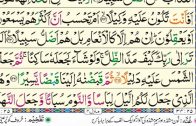 اَنْتَ تَكُوْنُ عَلَيْهِ وَكِيْلًا اَمْ تَحْسَبُ اَنَّ اَكْثَرَهُمْ يَسْمَعُوْنَ
اَوْ يَعْقِلُوْنَ اِنْ هُمْ اِلَّا كَالْاَنْعَامِ بَلْ هُمْ اَضَلُّ سَبِيْلًا اَلَمْ
تَرَ اِلٰى رَبِّكَ كَيْفَ مَدَّ الظِّلَّ وَلَوْ شَآءَ لَجَعَلَهٗ سَاكِنًا ثُمَّ جَعَلْنَا
الشَّمْسَ عَلَيْهِ دَلِيْلًا ثُمَّ قَبَضْنٰهُ اِلَيْنَا قَبْضًا يَّسِيْرًا وَهُوَ
الَّذِيْ جَعَلَ لَكُمُ الَّيْلَ لِبَاسًا وَّالنَّوْمَ سُبَاتًا وَّجَعَلَ النَّهَارَ